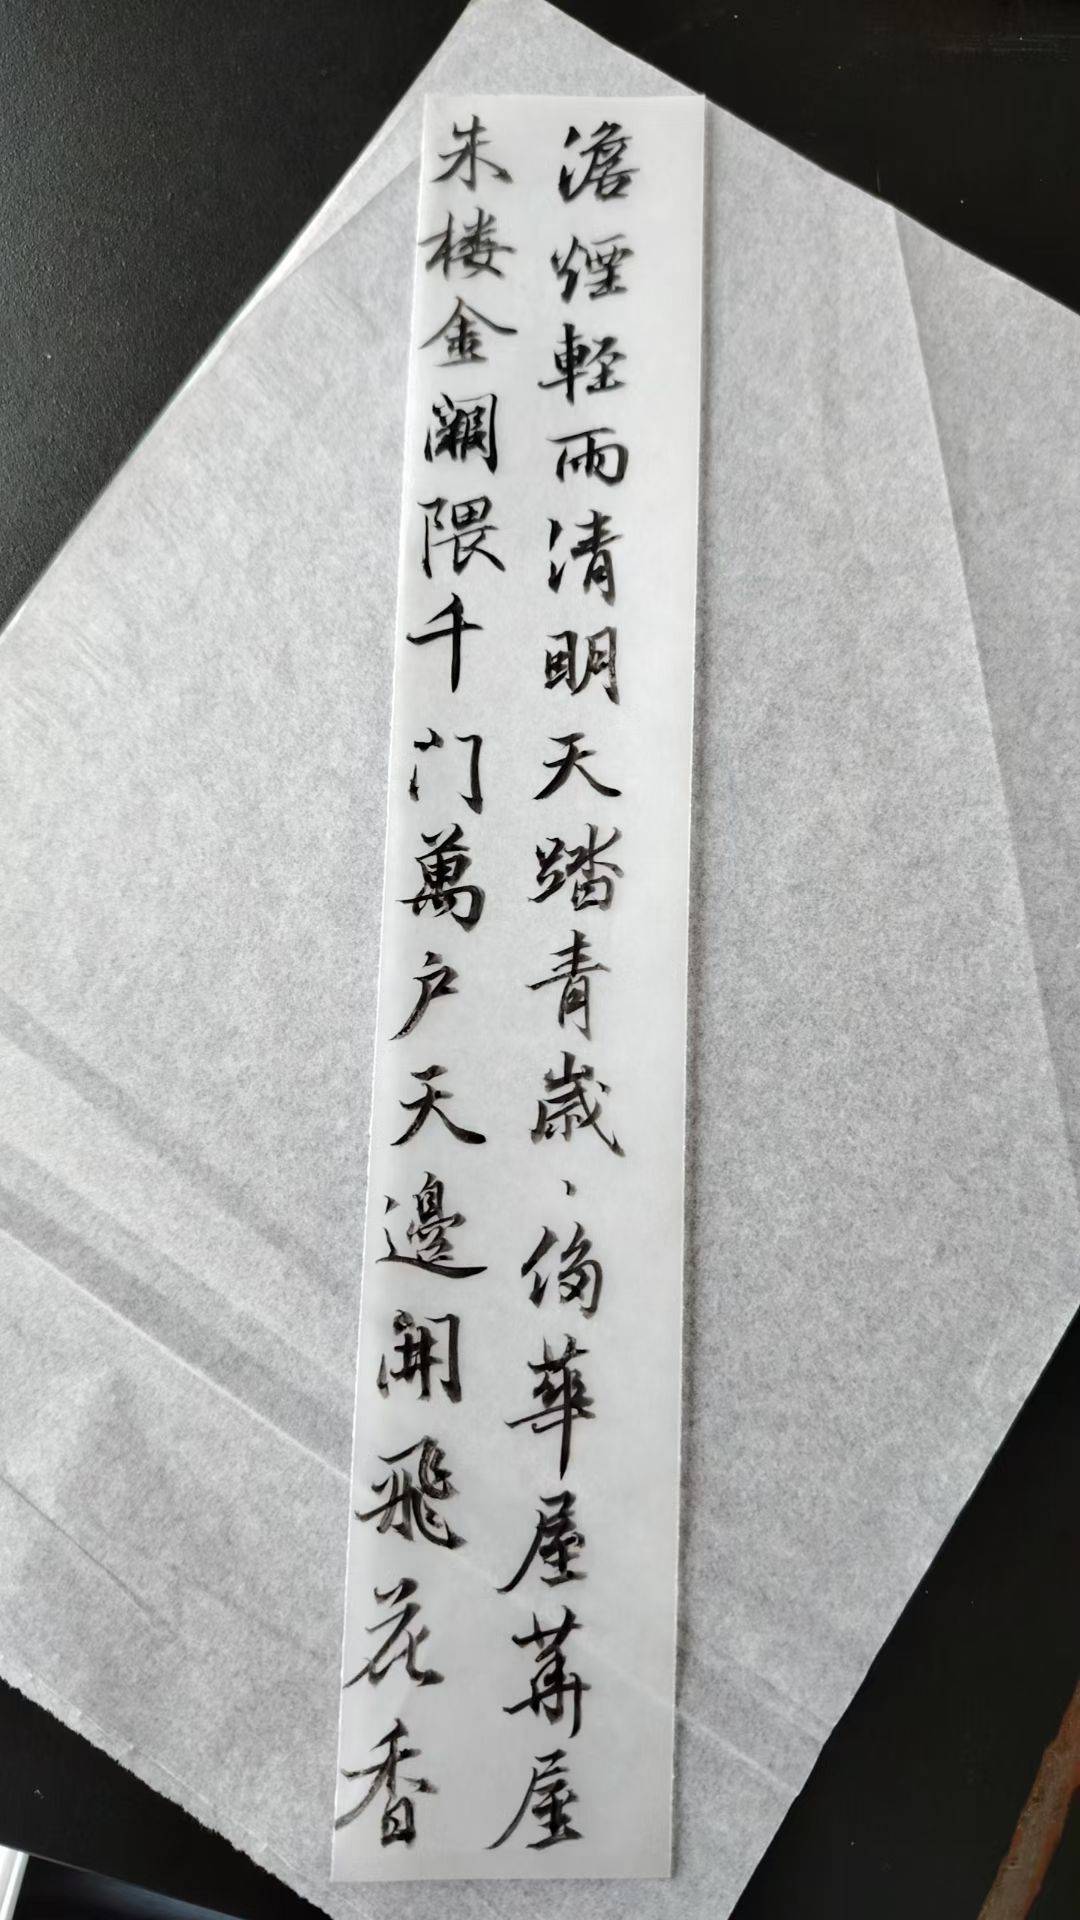 澹煙軽雨清明天踏青歳、偽華屋華屋
朱楼金闕隈千门萬户天邊開飛花香